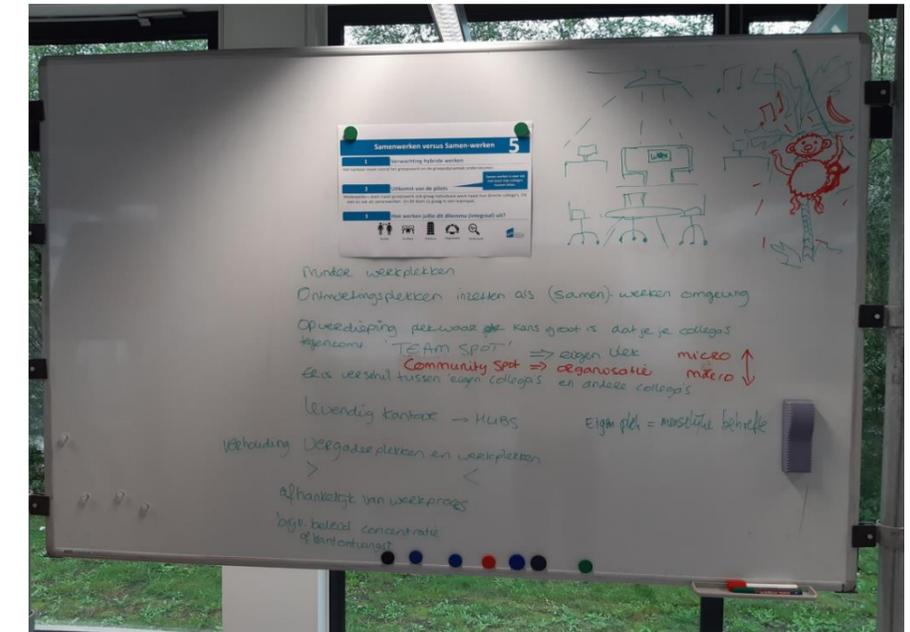 Samenwerken versus Samen-werken 5
1 Verwachting hybride werken
2 Uitkomst van de pilots
3 Hoe werken jullie dit dilemma (integraal) uit?
WORK
Minder werkplekken
Ontmoetingsplekken inzetten als (samen)-werken omgeving
Op verdieping plek waar kans groot is dat je je collega's
tegenkomt. 'TEAM SPOT' => eigen plek micro
Community Spot => organisatie macro
Er is verschil tussen 'eigen collega's en andere collega's
levendig kantoor → HUBS
Eigen plek = menselijke behoefte
Verhouding vergaderplekken en werkplekken
> <
afhankelijk van werkproces
bijv. beleid concentratie
of klantontvangst